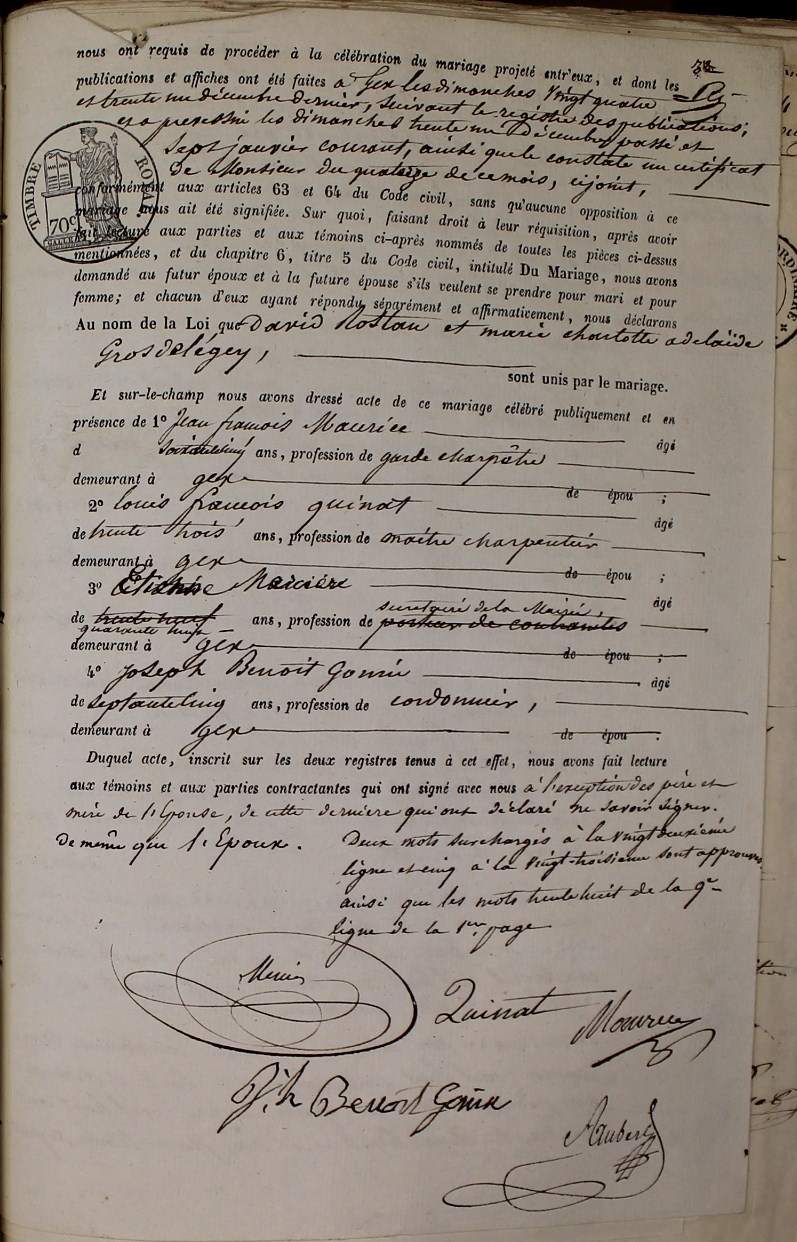 nous ont requis de procéder à la célébration du mariage projeté entr'eux, et dont les
publications et affiches ont été faites à Gex les dimanches vingt quatre
et trente un décembre dernier, suivant le registre des publications;
et a les dimanches trente un Décembre passé et
sept janvier courant, ainsi que le constate un certificat
De Monsieur du quatorze de ce mois, cijoint,
TIMBRE ROYAL
70c
conformément aux articles 63 et 64 du Code civil, sans qu'aucune opposition à ce
mariage nous ait été signifiée. Sur quoi, faisant droit à leur réquisition, après avoir
fait lecture aux parties et aux témoins ci-après nommés de toutes les pièces ci-dessus
mentionnées, et du chapitre 6, titre 5 du Code civil, intitulé Du Mariage, nous avons
demandé au futur époux et à la future épouse s'ils veulent se prendre pour mari et pour
femme; et chacun d'eux ayant répondu séparément et affirmativement, nous déclarons
Au nom de la Loi que David Rostan et marie charlotte adelaïde
Grosdelégey,
sont unis par le mariage.
Et sur-le-champ nous avons dressé acte de ce mariage célébré publiquement et en
présence de 1º Jean françois Maurice âgé
d soixantecinq ans, profession de garde champêtre
demeurant à gex de épou ;
2º louis françois quinat âgé
de trente trois ans, profession de maître charpentier
demeurant à gex de épou ;
3º Etienne âgé
secretaire de la Mairie,
de trente neuf ans, profession de
quarante neuf
demeurant à gex de épou ;
4º Joseph Benoit Gonin âgé
de septantecinq ans, profession de cordonnier,
demeurant à gex de épou .
Duquel acte, inscrit sur les deux registres tenus à cet effet, nous avons fait lecture
aux témoins et aux parties contractantes qui ont signé avec nous à l'exception des père et
mère de l'Epouse, de cette dernière qui ont déclaré ne savoir signer.
De même que l'Epoux. Deux mots surchargés à la vingt deuxième
ligne et cinq à la vingt-troisième sont approuvés
ainsi que les mots trente huit de la 9e
ligne de la 1ère page
Quinat
Maurice
Jh Benoit Gonin